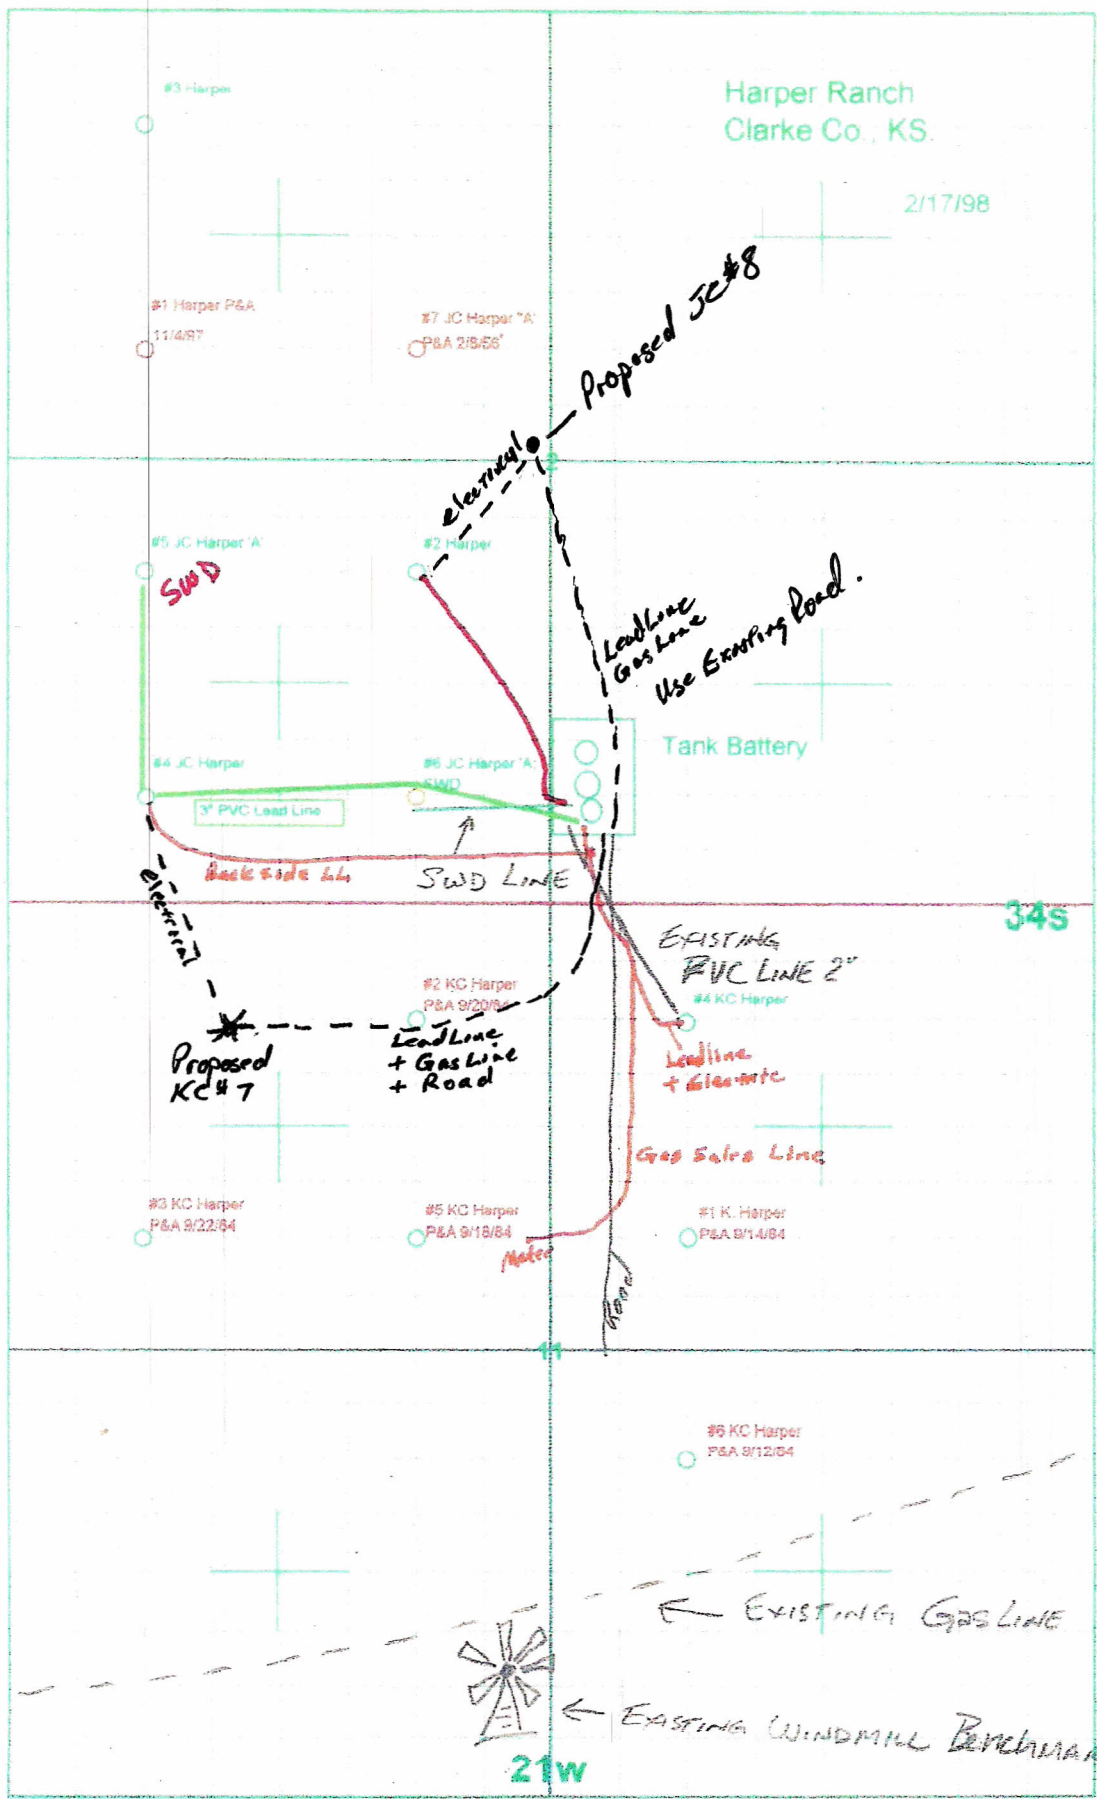 #3 Harper
Harper Ranch
Clarke Co., KS.
2/17/98
Proposed JC#8
#1 Harper P&A
11/4/97
#7 JC Harper "A"
P&A 2/8/56"
electrical
2
#5 JC Harper 'A'
SWD
#2 Harper
LeadLine
Gas Line
Use Existing Road.
Tank Battery
#4 JC Harper
#6 JC Harper 'A'
SWD
3" PVC Lead Line
Back side LL
SWD LINE
electrical
34s
EXISTING
PVC LINE 2"
#2 KC Harper
P&A 9/20/84
#4 KC Harper
Proposed
KC#7
LeadLine
+ Gas Line
+ Road
Leadline
+ Electric
Gas Sales Line
#3 KC Harper
P&A 9/22/84
#5 KC Harper
P&A 9/18/84
#1 K. Harper
P&A 9/14/84
Meter
Road
11
#6 KC Harper
P&A 9/12/84
EXISTING GAS LINE
EXISTING WINDMILL BENCHMAR
21w